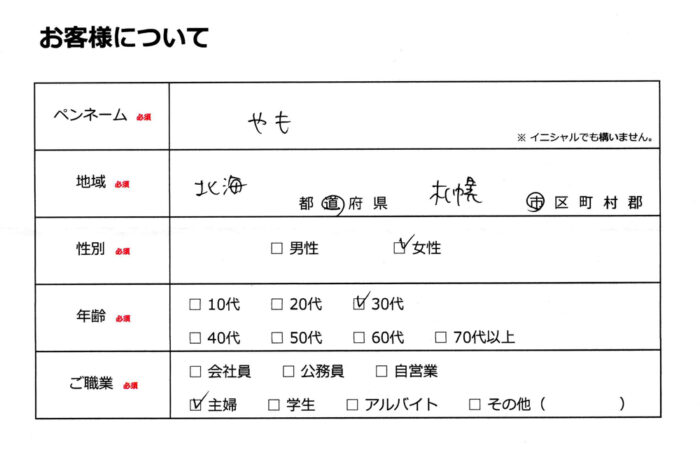 お客様について
ペンネーム 必須
やも
※ イニシャルでも構いません。
地域 必須
北海 都 道 府 県 札幌 市 区 町 村 郡
性別 必須
□ 男性 ☑ 女性
年齢 必須
□ 10代 □ 20代 ☑ 30代
□ 40代 □ 50代 □ 60代 □ 70代以上
ご職業 必須
□ 会社員 □ 公務員 □ 自営業
☑ 主婦 □ 学生 □ アルバイト □ その他 ( )